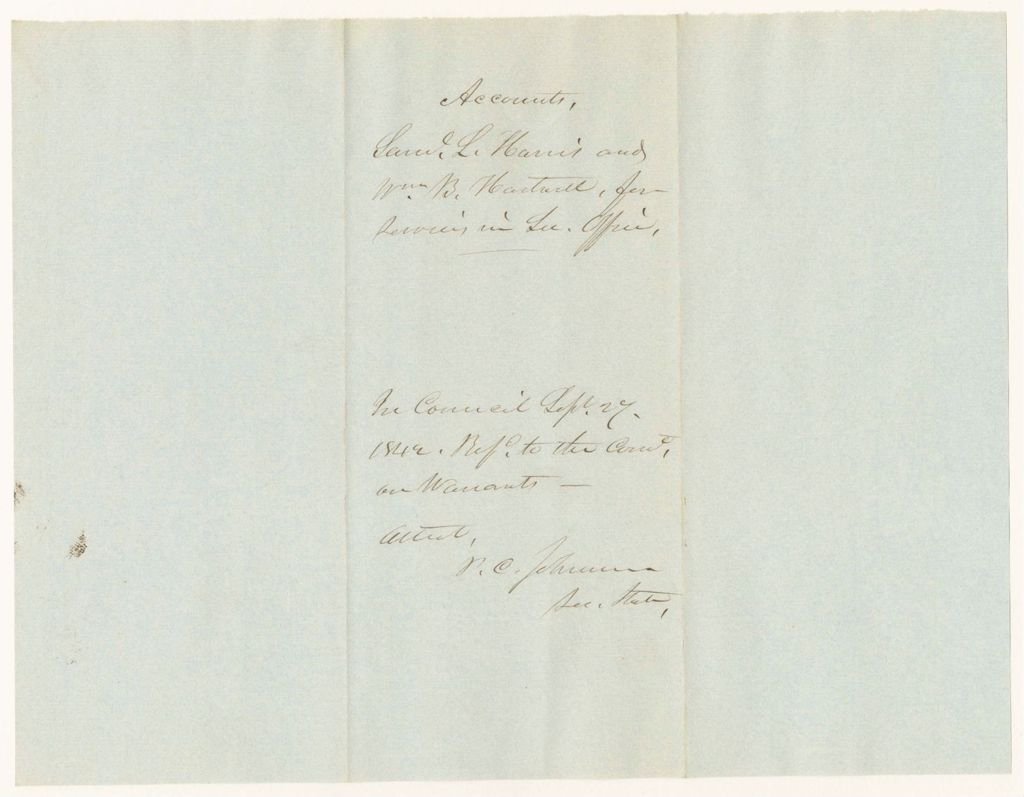 Accounts,
Saml. L. Harris and
Wm. B. Hartwell, for
services in Sec. Office,
In Council Sept. 27.
1842. Refd. to the Come.
on Warrants —
Attest,
P. C. Johnson
Sec. State,